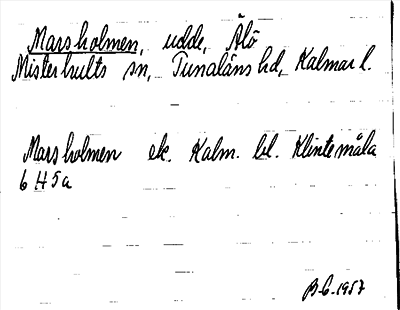 Marsholmen, udde, Älö
Misterhults sn, Tunaläns hd, Kalmar l.
Marsholmen ek. Kalm. bl. Klintemåla
6 H 5 a
B-C-1957